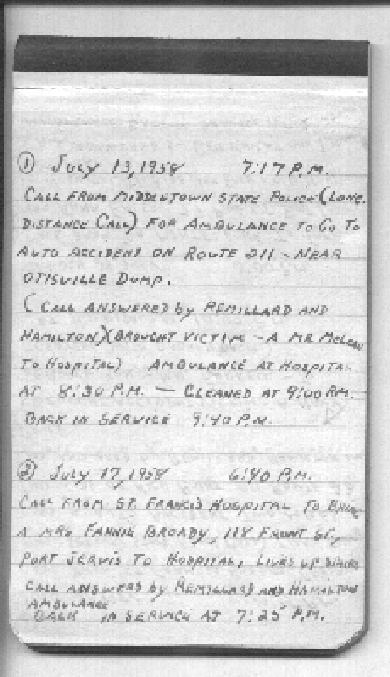 ① July 13, 1958 7:17 P.M.
CALL FROM MIDDLETOWN STATE POLICE (LONG
DISTANCE CALL) FOR AMBULANCE TO GO TO
AUTO ACCIDENT ON ROUTE 211 - NEAR
OTISVILLE DUMP.
(CALL ANSWERED by REMILLARD AND
HAMILTON) (BROUGHT VICTIM - A MR McLEAN
TO HOSPITAL) AMBULANCE AT HOSPITAL
AT 8:30 P.M. — CLEANED AT 9:00 P.M.
BACK IN SERVICE 9:40 P.M.
② July 17, 1958 6:40 P.M.
CALL FROM ST. FRANCIS HOSPITAL TO BRING
A MRS FANNIE BROADY, 118 FRONT ST.,
PORT JERVIS TO HOSPITAL, LIVES UP STAIRS
CALL ANSWERED by REMILLARD AND HAMILTON
AMBULANCE
BACK IN SERVICE AT 7:25 P.M.